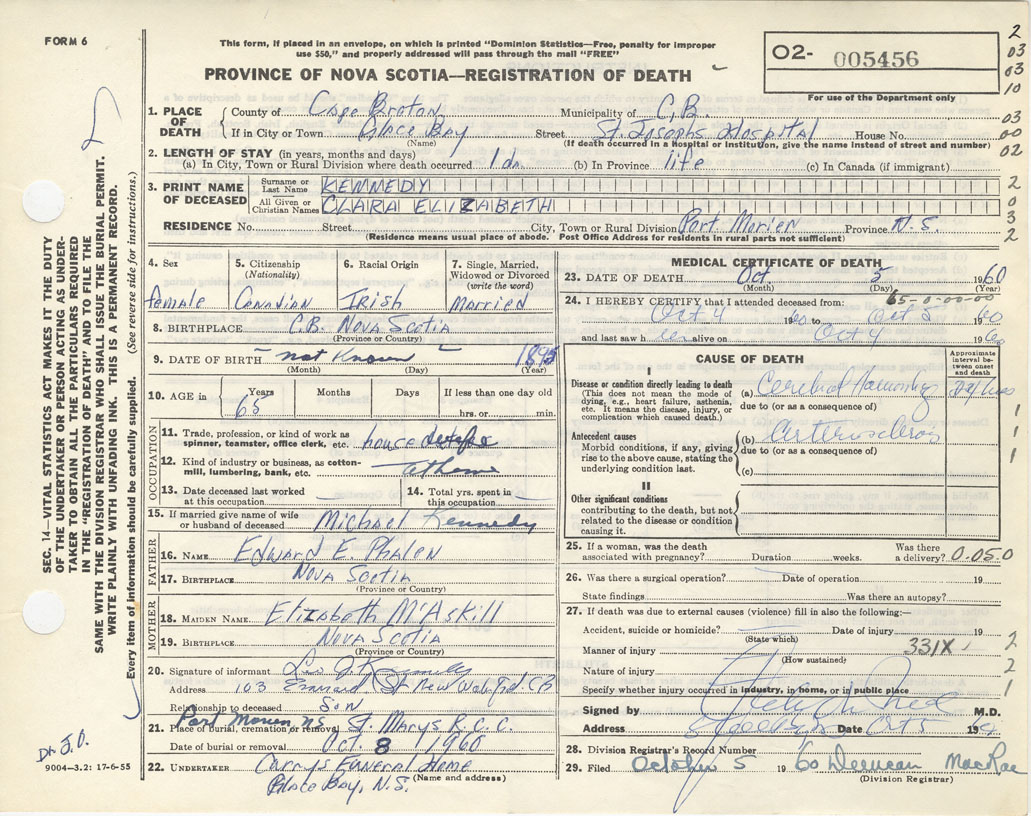 FORM 6
This form, if placed in an envelope, on which is printed "Dominion Statistics—Free, penalty for improper
use $50," and properly addressed will pass through the mail "FREE"
PROVINCE OF NOVA SCOTIA—REGISTRATION OF DEATH
O2- 005456
For use of the Department only
2
03
03
10
03
00
02
2
0
3
2
SEC. 14—VITAL STATISTICS ACT MAKES IT THE DUTY
OF THE UNDERTAKER OR PERSON ACTING AS UNDER-
TAKER TO OBTAIN ALL THE PARTICULARS REQUIRED
IN THE "REGISTRATION OF DEATH" AND TO FILE THE
SAME WITH THE DIVISION REGISTRAR WHO SHALL ISSUE THE BURIAL PERMIT.
WRITE PLAINLY WITH UNFADING INK. THIS IS A PERMANENT RECORD.
Every item of information should be carefully supplied. (See reverse side for instructions.)
1. PLACE OF DEATH
County of Cape Breton Municipality of C.B.
If in City or Town Glace Bay Street St. Josephs Hospital House No.
(Name) (If death occurred in a Hospital or Institution, give the name instead of street and number)
2. LENGTH OF STAY (in years, months and days)
(a) In City, Town or Rural Division where death occurred 1 da. (b) In Province life (c) In Canada (if immigrant)
3. PRINT NAME OF DECEASED
Surname or Last Name KENNEDY
All Given or Christian Names CLARA ELIZABETH
RESIDENCE No. Street City, Town or Rural Division Port Morien Province N.S.
(Residence means usual place of abode. Post Office Address for residents in rural parts not sufficient)
4. Sex 5. Citizenship (Nationality) 6. Racial Origin 7. Single, Married, Widowed or Divorced (write the word)
female Canadian IRISH Married
8. BIRTHPLACE C.B. Nova Scotia
(Province or Country)
9. DATE OF BIRTH not Known 1895
(Month) (Day) (Year)
10. AGE in Years Months Days If less than one day old
65 hrs. or min.
OCCUPATION
11. Trade, profession, or kind of work as
spinner, teamster, office clerk, etc. house
12. Kind of industry or business, as cotton-
mill, lumbering, bank, etc. at home
13. Date deceased last worked
at this occupation
14. Total yrs. spent in
this occupation
15. If married give name of wife
or husband of deceased Michael Kennedy
FATHER
16. NAME Edward E. Phalen
17. BIRTHPLACE Nova Scotia
(Province or Country)
MOTHER
18. MAIDEN NAME Elizabeth McAskill
19. BIRTHPLACE Nova Scotia
(Province or Country)
20. Signature of informant
Address 103 St New Wat-Frd. CB
Relationship to deceased Son
Port Morien, NS
21. Place of burial, cremation or removal St. Marys R.C.C.
Date of burial or removal Oct. 8 1960
22. UNDERTAKER Currys Funeral Home
(Name and address)
Glace Bay, N.S.
Dr. J.D.
9004—3.2: 17-6-55
MEDICAL CERTIFICATE OF DEATH
23. DATE OF DEATH Oct. 5 1960
(Month) (Day) (Year)
65-0-00-00
24. I HEREBY CERTIFY that I attended deceased from:
Oct 4 1960 to Oct 5 1960
and last saw h er alive on Oct 4 1960
CAUSE OF DEATH
Approximate interval between onset and death
I
Disease or condition directly leading to death
(This does not mean the mode of
dying, e.g., heart failure, asthenia,
etc. It means the disease, injury, or
complication which caused death.)
(a) Cerebral
due to (or as a consequence of)
Antecedent causes
Morbid conditions, if any, giving
rise to the above cause, stating the
underlying condition last.
(b)
due to (or as a consequence of)
(c)
1
1
1
II
Other significant conditions
contributing to the death, but not
related to the disease or condition
causing it.
25. If a woman, was the death
associated with pregnancy? Duration weeks. Was there
a delivery? 0.05.0
26. Was there a surgical operation? Date of operation 19
State findings Was there an autopsy?
27. If death was due to external causes (violence) fill in also the following:—
Accident, suicide or homicide? Date of injury 19
(State which)
Manner of injury 331X
(How sustained)
Nature of injury
Specify whether injury occurred in industry, in home, or in public place
2
2
1
Signed by M.D.
Address Date Oct 5 1960
28. Division Registrar's Record Number
29. Filed October 5 1960 Duncan MacRae
(Division Registrar)